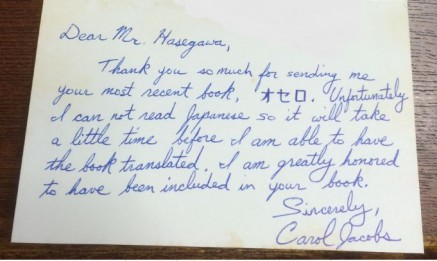 Dear Mr. Hasegawa,
Thank you so much for sending me
your most recent book, オセロ. Unfortunately
I can not read Japanese so it will take
a little time before I am able to have
the book translated. I am greatly honored
to have been included in your book.
Sincerely,
Carol Jacobs